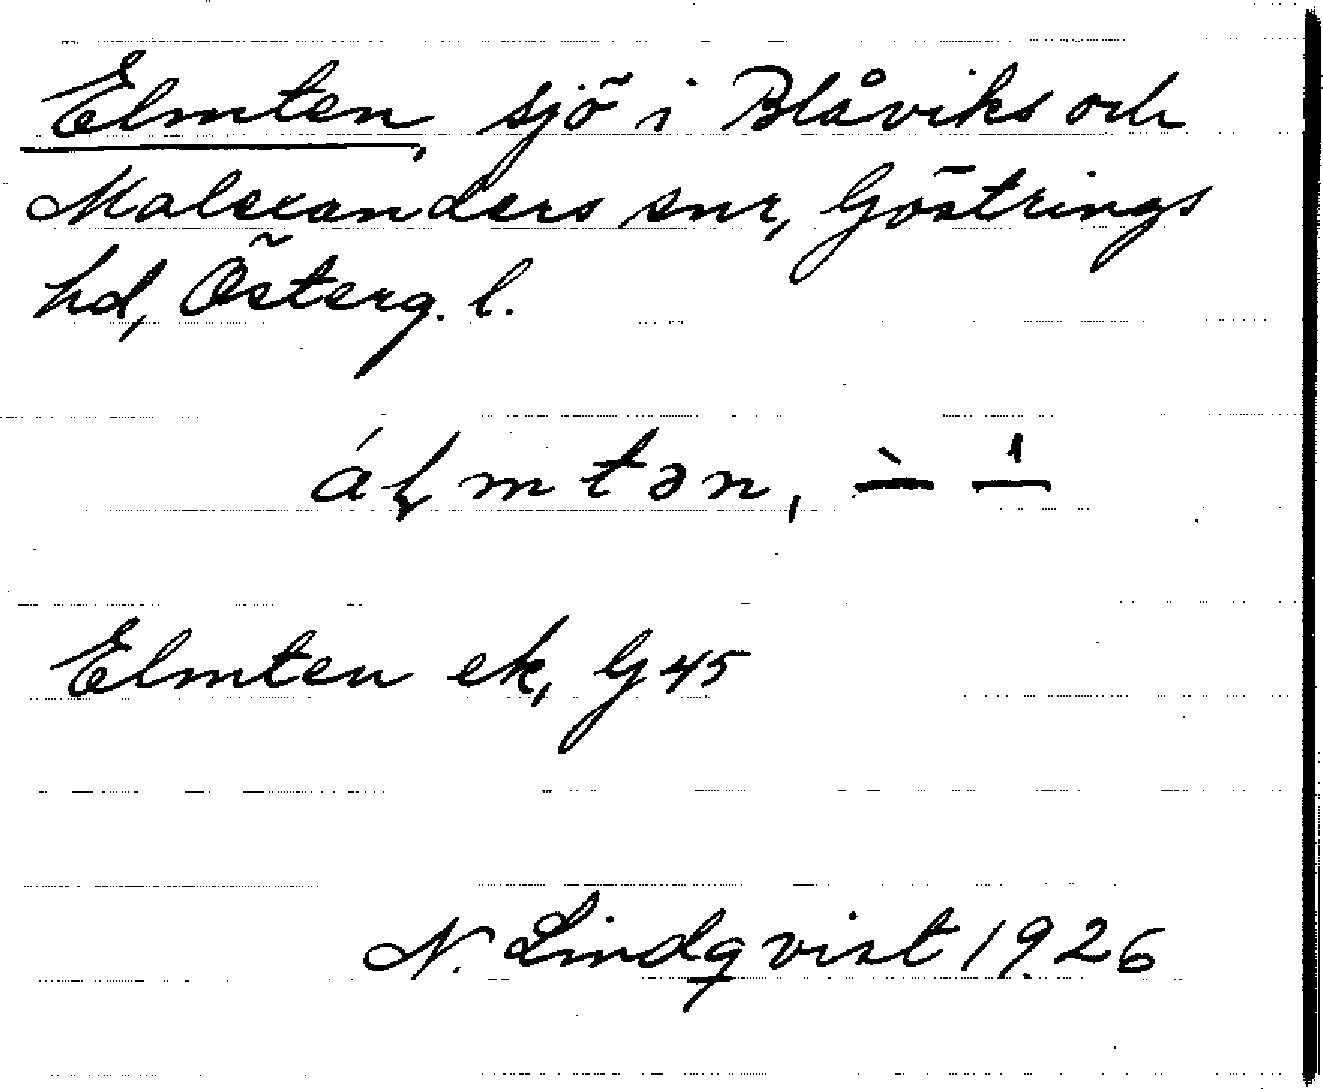 Elmten, sjö i Blåviks och
Malexanders snr, Göstrings
hd, Österg. l.
áɬmtən, –̀ –́
Elmten ek, G 45
N. Lindqvist 1926